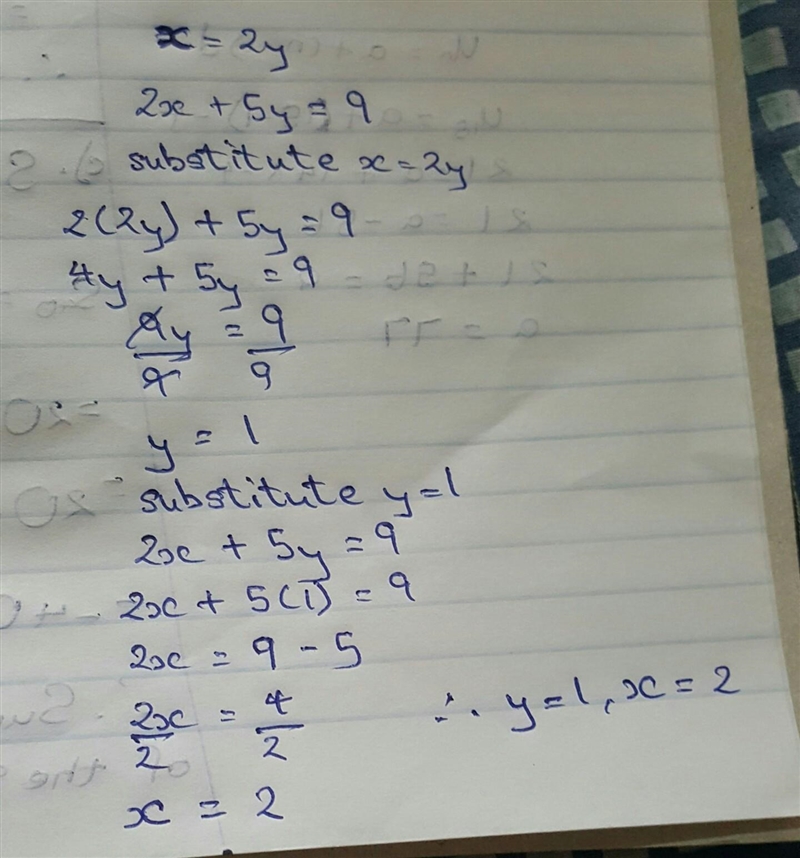 x = 2y
2x + 5y = 9
substitute x = 2y
2(2y) + 5y = 9
4y + 5y = 9
9y/9 = 9/9
y = 1
substitute y = 1
2x + 5y = 9
2x + 5(1) = 9
2x = 9 - 5
2x/2 = 4/2
∴ y = 1, x = 2
x = 2